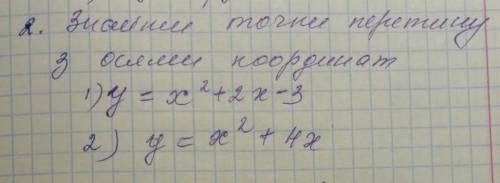 2. Знайти точки перетину
з осями координат
1) y = x² + 2x - 3
2) y = x² + 4x